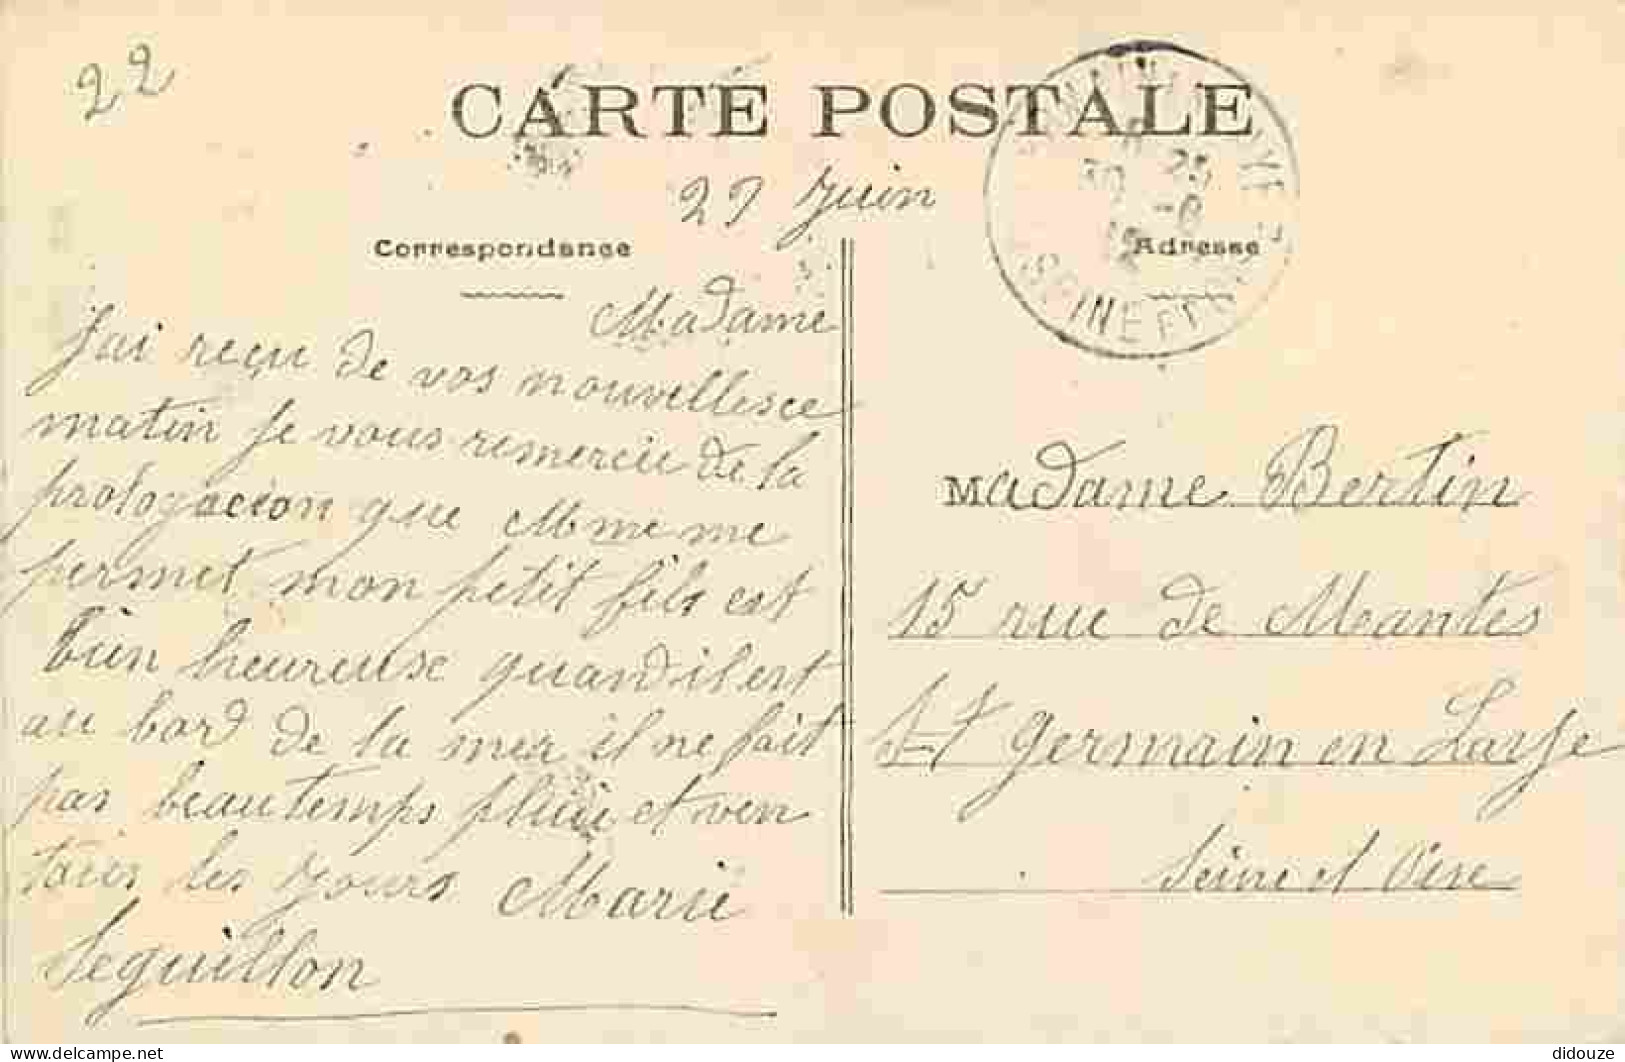 22
CARTE POSTALE
29 Juin
Correspondance
Adresse
Madame
J'ai reçu de vos nouvelles ce
matin je vous remercie de la
prologacion que Mme me
permet mon petit fils est
bien heureuse quand il est
au bord de la mer il ne fait
pas beau temps pluie et ven
tous les jours Marie
Seguillon
Madame Bertin
15 rue de Mantes
St germain en Laye
Seine et Oise
didouze